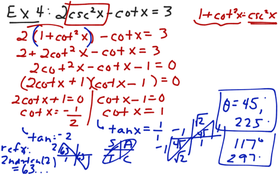 Ex 4: 2csc²x - cotx = 3
1 + cot²x = csc²x
2(1+cot²x) - cotx = 3
2 + 2cot²x - cotx = 3
2cot²x - cotx - 1 = 0
(2cotx + 1)(cotx - 1) = 0
2cotx + 1 = 0
cotx - 1 = 0
cotx = -1/2
cotx = 1
tan = -2
tanx = 1/1
θ = 45,
225
117°
297